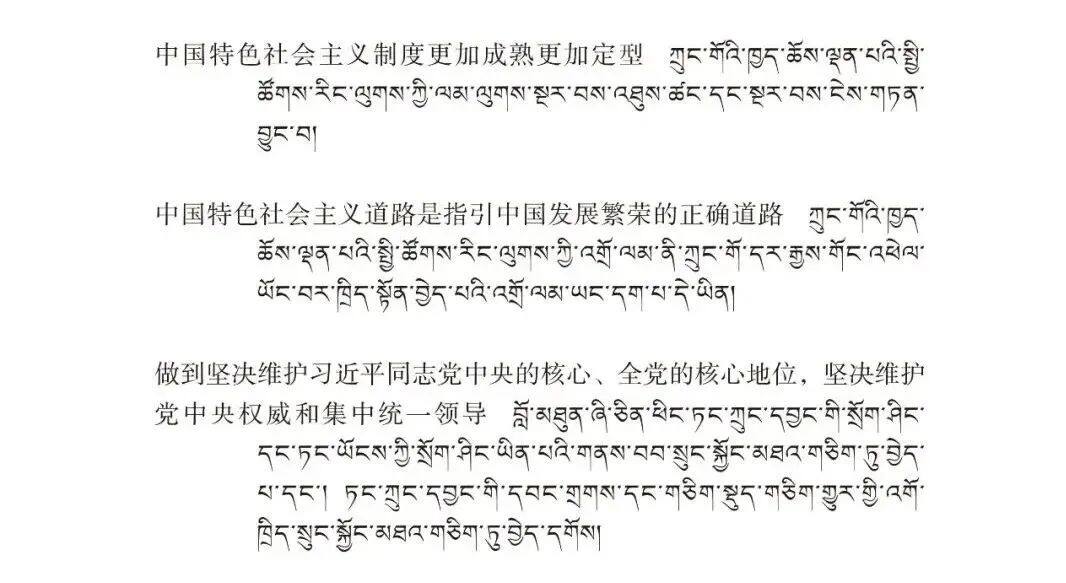 中国特色社会主义制度更加成熟更加定型 ཀྲུང་གོའི་ཁྱད་ཆོས་ལྡན་པའི་སྤྱི་
ཚོགས་རིང་ལུགས་ཀྱི་ལམ་ལུགས་སྔར་བས་འཐུས་ཚང་དང་སྔར་བས་ངེས་གཏན་
བྱུང་བ།
中国特色社会主义道路是指引中国发展繁荣的正确道路 ཀྲུང་གོའི་ཁྱད་
ཆོས་ལྡན་པའི་སྤྱི་ཚོགས་རིང་ལུགས་ཀྱི་འགྲོ་ལམ་ནི་ཀྲུང་གོ་དར་རྒྱས་གོང་འཕེལ་
ཡོང་བར་ཁྲིད་སྟོན་བྱེད་པའི་འགྲོ་ལམ་ཡང་དག་པ་དེ་ཡིན།
做到坚决维护习近平同志党中央的核心、全党的核心地位，坚决维护
党中央权威和集中统一领导 བློ་མཐུན་ཞི་ཅིན་ཕིང་ཏང་ཀྲུང་དབྱང་གི་སྲོག་ཤིང་
དང་ཏང་ཡོངས་ཀྱི་སྲོག་ཤིང་ཡིན་པའི་གནས་བབ་སྲུང་སྐྱོང་མཐའ་གཅིག་ཏུ་བྱེད་
པ་དང་། ཏང་ཀྲུང་དབྱང་གི་དབང་གྲགས་དང་གཅིག་སྡུད་གཅིག་གྱུར་གྱི་འགོ་
ཁྲིད་སྲུང་སྐྱོང་མཐའ་གཅིག་ཏུ་བྱེད་དགོས།